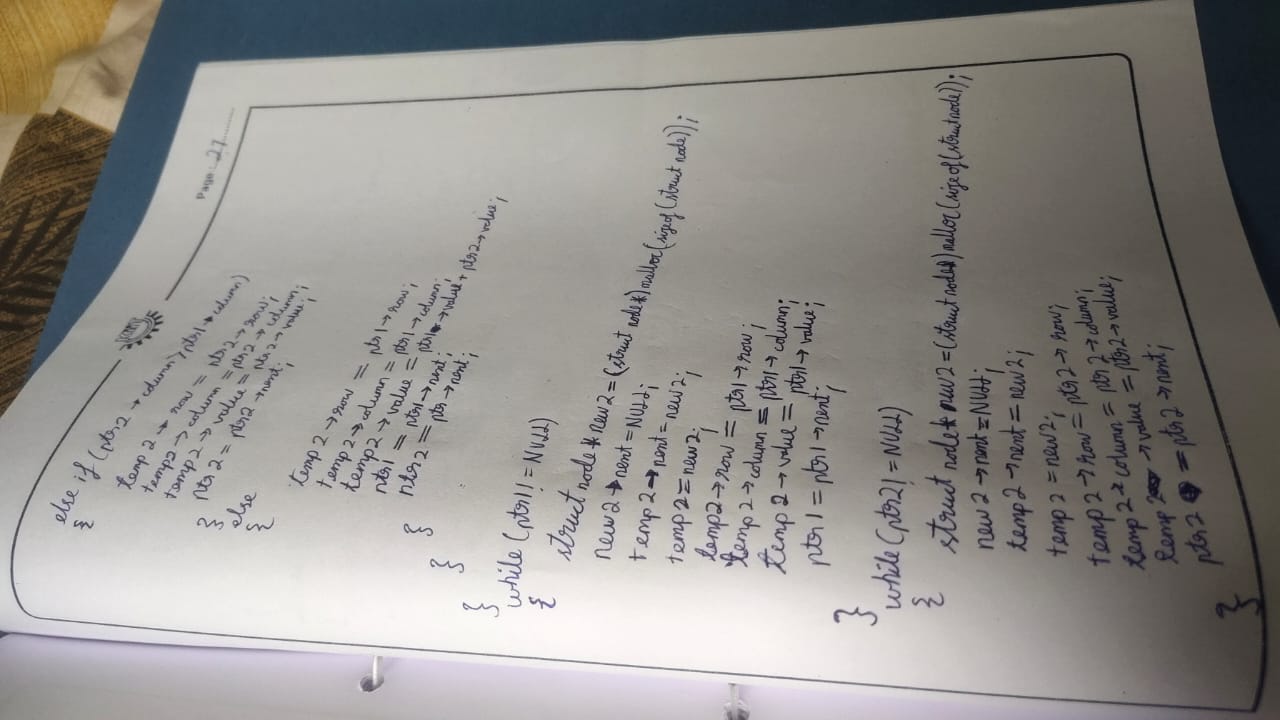 Page: 27
else if (ptr2 → column > ptr1 → column)
{
temp2 → row = ptr2 → row;
temp2 → column = ptr2 → column;
temp2 → value = ptr2 → value;
ptr2 = ptr2 → next;
}
else
{
temp2 → row = ptr1 → row;
temp2 → column = ptr1 → column;
temp2 → value = ptr1 → value + ptr2 → value;
ptr1 = ptr1 → next;
ptr2 = ptr → next;
}
}
}
while (ptr1 != NULL)
{
struct node * new2 = (struct node*) malloc (sizeof (struct node));
new2 → next = NULL;
temp2 → next = new2;
temp2 = new2;
temp2 → row = ptr1 → row;
temp2 → column = ptr1 → column;
temp2 → value = ptr1 → value;
ptr1 = ptr1 → next;
}
while (ptr2 != NULL)
{
struct node* new2 = (struct node*) malloc (sizeof (struct node));
new2 → next = NULL;
temp2 → next = new2;
temp2 = new2;
temp2 → row = ptr2 → row;
temp2 → column = ptr2 → column;
temp2 → value = ptr2 → value;
ptr2 = ptr2 → next;
}